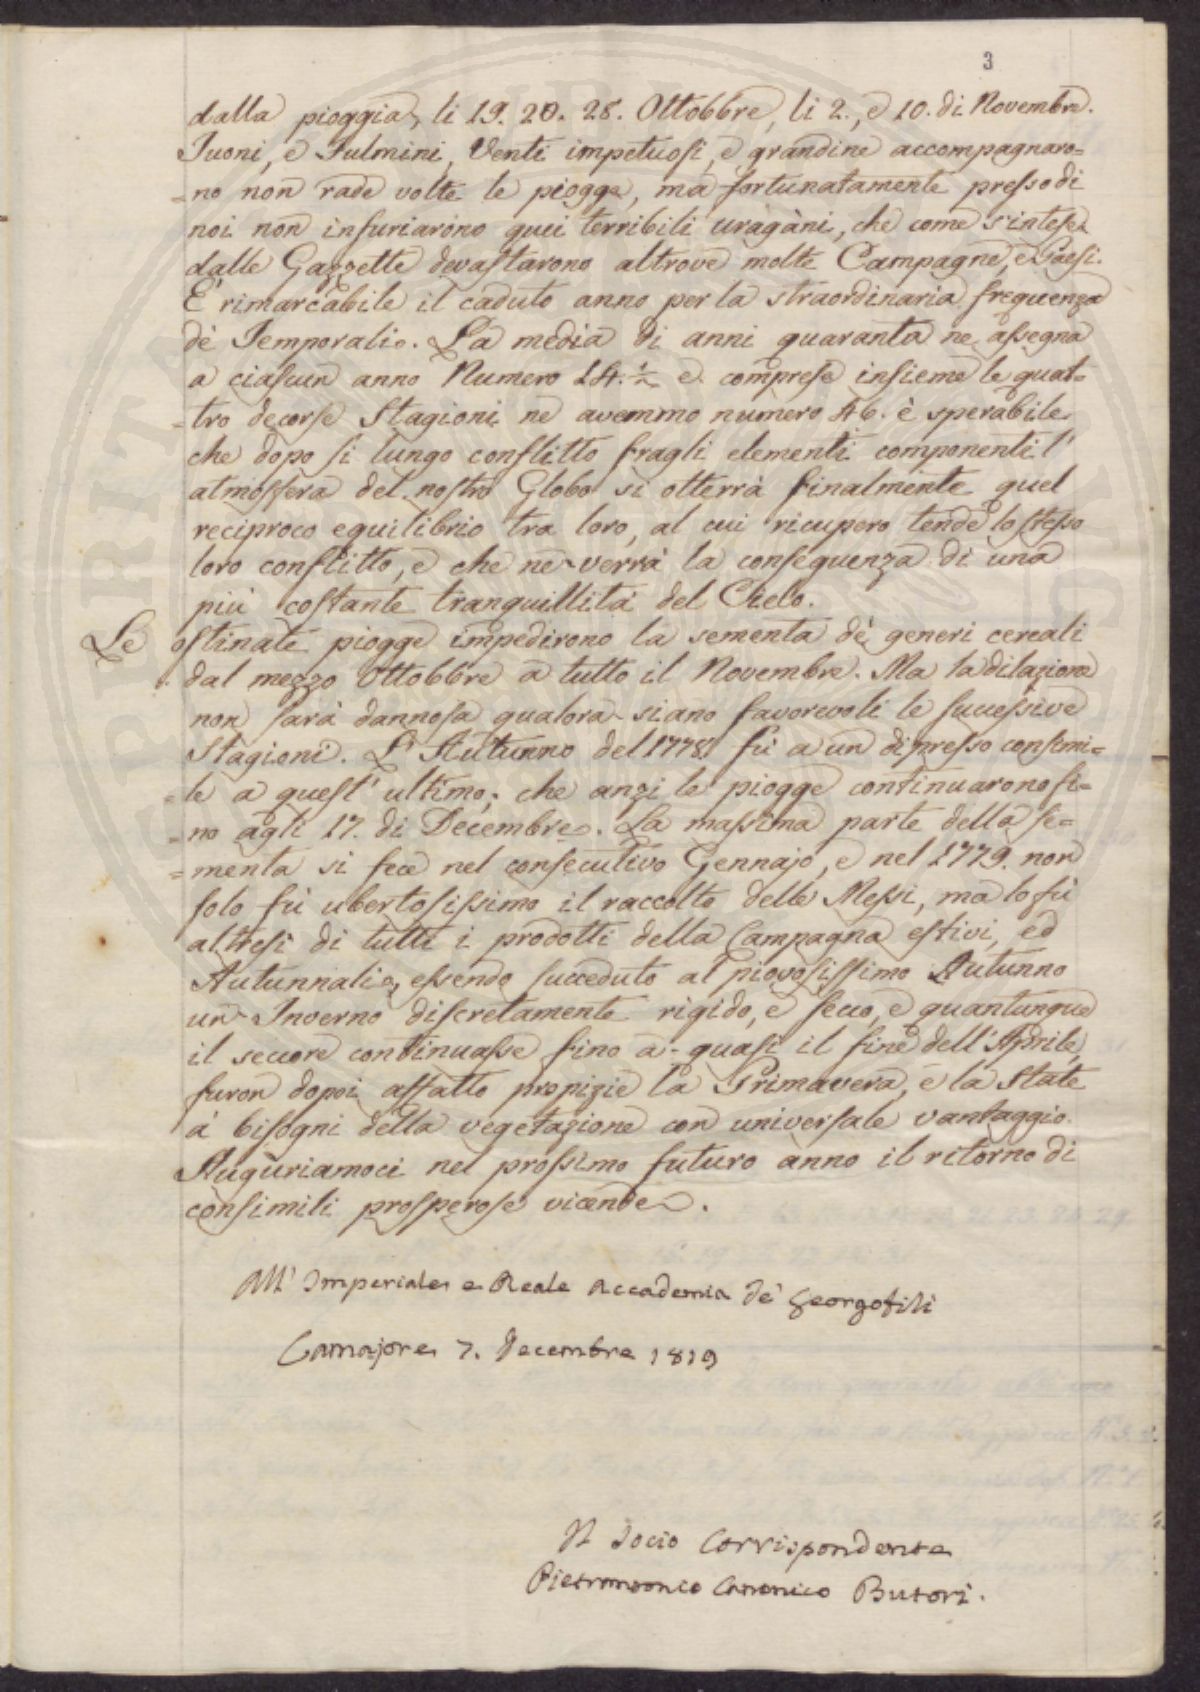 3
dalla pioggia, li 19. 20. 28. Ottobbre, li 2., e 10. di Novembre.
Tuoni, e Fulmini, Venti impetuosi, e grandine accompagnaro=
=no non rade volte le piogge, ma fortunatamente presso di
noi non infuriarono quei terribili uragàni, che come s'intese
dalle Gazzette devastarono altrove molte Campagne, e Paesi.
E' rimarcabile il caduto anno per la straordinaria frequenza
dè Temporali. La media di anni quaranta ne assegna
a ciascun anno Numero 14. 1/2 e comprese insieme le quat=
=tro decorse Stagioni ne avemmo numero 46. è sperabile
che dopo si lungo conflitto fragli elementi componenti l'
atmosfera del nostro Globo si otterrà finalmente quel
reciproco equilibrio tra loro, al cui ricupero tende lo stesso
loro conflitto, e che ne verrà la conseguenza di una
più costante tranquillità del Cielo.
Le ostinate piogge impedirono la sementa dè generi cereali
dal mezzo Ottobbre a tutto il Novembre. Ma la dilazione
non sarà dannosa qualora siano favorevoli le successive
Stagioni. L'Autunno del 1778. fù a un dipresso consimi=
=le a quest' ultimo; che anzi le piogge continuarono fi=
=no agli 17. di Decembre. La massima parte della se=
=menta si fece nel consecutivo Gennajo, e nel 1779. non
solo fù ubertosissimo il raccolto delle Messi, ma lo fù
altresì di tutti i prodotti della Campagna estivi, ed
Autunnali, essendo succeduto al piovosissimo Autunno
un Inverno discretamente rigido, e secco, e quantunque
il seccore continuasse fino a quasi il fine dell'Aprile,
furon dopoi affatto propizie la Primavera, e la State
à bisogni della vegetazione con universale vantaggio.
Auguriamoci nel prossimo futuro anno il ritorno di
consimili prosperose vicende.
All' Imperiale e Reale Accademia de' Georgofili
Camajore 7. Decembre 1819
Il Socio Corrispondente
Pietrantonio Canonico Butori.